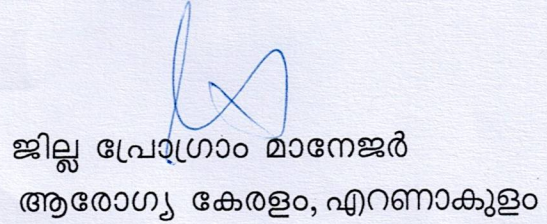 ജില്ല പ്രോഗ്രാം മാനേജർ
ആരോഗ്യ കേരളം, എറണാകുളം